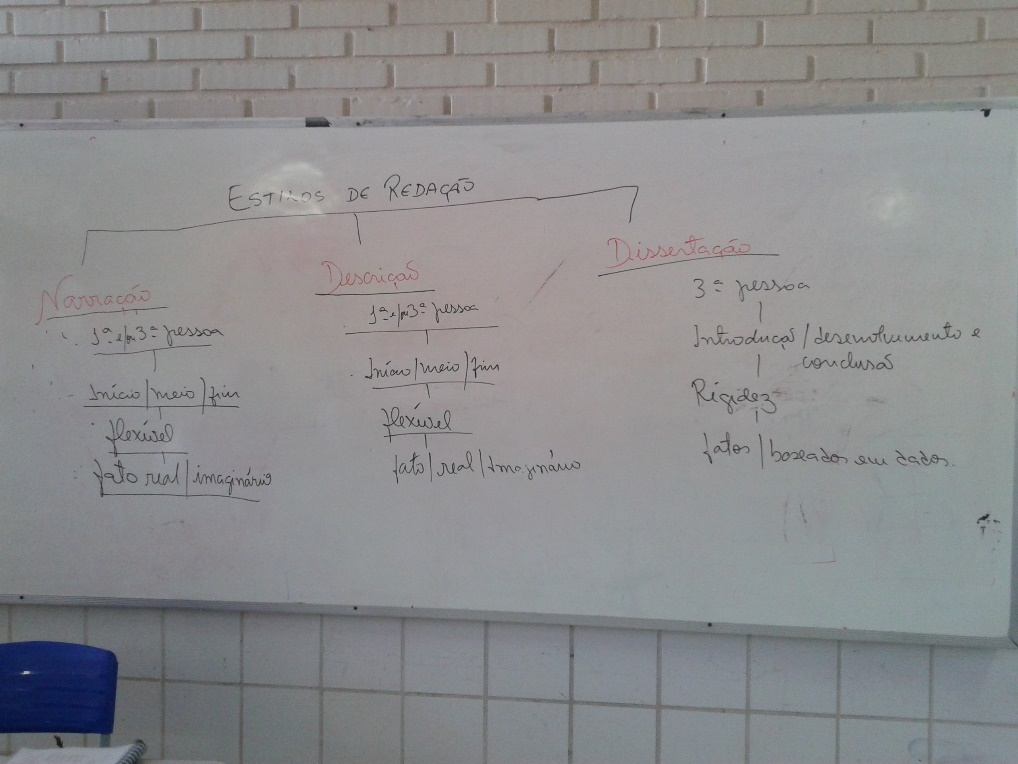 ESTILOS DE REDAÇÃO
Narração
1ª e/ou 3ª pessoa
Início/meio/fim
flexível
fato real/imaginário
Descrição
1ª e/ou 3ª pessoa
Início/meio/fim
flexível
fato/real/Imaginário
Dissertação
3ª pessoa
Introdução/desenvolvimento e
conclusão
Rigidez
fatos/baseados em dados.